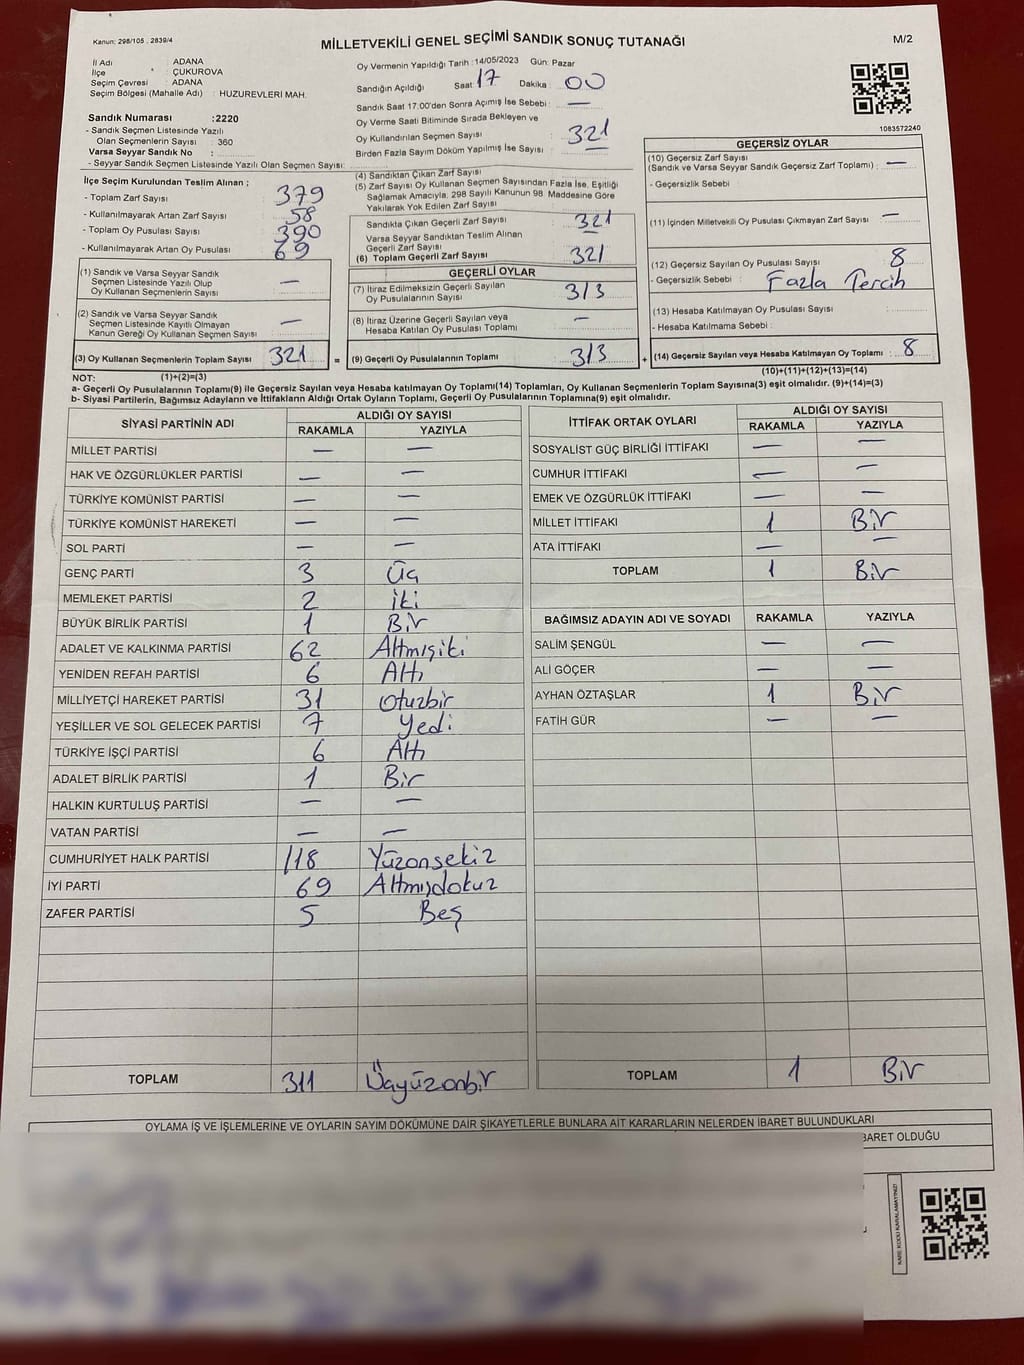 Kanun: 298/105 , 2839/4
MİLLETVEKİLİ GENEL SEÇİMİ SANDIK SONUÇ TUTANAĞI
M/2
İl Adı : ADANA
İlçe : ÇUKUROVA
Seçim Çevresi : ADANA
Seçim Bölgesi (Mahalle Adı) : HUZUREVLERİ MAH.
Sandık Numarası :2220
- Sandık Seçmen Listesinde Yazılı
Olan Seçmenlerin Sayısı : 360
Varsa Seyyar Sandık No :
- Seyyar Sandık Seçmen Listesinde Yazılı Olan Seçmen Sayısı:
Oy Vermenin Yapıldığı Tarih :14/05/2023 Gün: Pazar
Sandığın Açıldığı Saat: 17 Dakika : 00
Sandık Saat 17:00'den Sonra Açımış İse Sebebi : —
Oy Verme Saati Bitiminde Sırada Bekleyen ve
Oy Kullandırılan Seçmen Sayısı : 321
Birden Fazla Sayım Döküm Yapılmış İse Sayısı : —
1083572240
İlçe Seçim Kurulundan Teslim Alınan ;
- Toplam Zarf Sayısı : 379
- Kullanılmayarak Artan Zarf Sayısı : 58
- Toplam Oy Pusulası Sayısı : 390
- Kullanılmayarak Artan Oy Pusulası : 69
(1) Sandık ve Varsa Seyyar Sandık
Seçmen Listesinde Yazılı Olup
Oy Kullanan Seçmenlerin Sayısı : —
(2) Sandık ve Varsa Seyyar Sandık
Seçmen Listesinde Kayıtlı Olmayan
Kanun Gereği Oy Kullanan Seçmen Sayısı : —
(3) Oy Kullanan Seçmenlerin Toplam Sayısı : 321 =
(4) Sandıktan Çıkan Zarf Sayısı :
(5) Zarf Sayısı Oy Kullanan Seçmen Sayısından Fazla İse, Eşitliği
Sağlamak Amacıyla, 298 Sayılı Kanunun 98. Maddesine Göre
Yakılarak Yok Edilen Zarf Sayısı :
Sandıkta Çıkan Geçerli Zarf Sayısı : 321
Varsa Seyyar Sandıktan Teslim Alınan
Geçerli Zarf Sayısı : —
(6) Toplam Geçerli Zarf Sayısı : 321
GEÇERLİ OYLAR
(7) İtiraz Edilmeksizin Geçerli Sayılan
Oy Pusulalarının Sayısı : 313
(8) İtiraz Üzerine Geçerli Sayılan veya
Hesaba Katılan Oy Pusulası Toplamı : —
(9) Geçerli Oy Pusulalarının Toplamı : 313 +
GEÇERSİZ OYLAR
(10) Geçersiz Zarf Sayısı
(Sandık ve Varsa Seyyar Sandık Geçersiz Zarf Toplamı) : —
- Geçersizlik Sebebi :
(11) İçinden Milletvekili Oy Pusulası Çıkmayan Zarf Sayısı : —
(12) Geçersiz Sayılan Oy Pusulası Sayısı : 8
- Geçersizlik Sebebi : Fazla Tercih
(13) Hesaba Katılmayan Oy Pusulası Sayısı :
- Hesaba Katılmama Sebebi :
(14) Geçersiz Sayılan veya Hesaba Katılmayan Oy Toplamı : 8
NOT: (1)+(2)=(3)
(10)+(11)+(12)+(13)=(14)
a- Geçerli Oy Pusulalarının Toplamı(9) ile Geçersiz Sayılan veya Hesaba katılmayan Oy Toplamı(14) Toplamları, Oy Kullanan Seçmenlerin Toplam Sayısına(3) eşit olmalıdır. (9)+(14)=(3)
b- Siyasi Partilerin, Bağımsız Adayların ve İttifakların Aldığı Ortak Oyların Toplamı, Geçerli Oy Pusulalarının Toplamına(9) eşit olmalıdır.
SİYASİ PARTİNİN ADI ALDIĞI OY SAYISI
RAKAMLA YAZIYLA
MİLLET PARTİSİ — —
HAK VE ÖZGÜRLÜKLER PARTİSİ — —
TÜRKİYE KOMÜNİST PARTİSİ — —
TÜRKİYE KOMÜNİST HAREKETİ — —
SOL PARTİ — —
GENÇ PARTİ 3 Üç
MEMLEKET PARTİSİ 2 İki
BÜYÜK BİRLİK PARTİSİ 1 Bir
ADALET VE KALKINMA PARTİSİ 62 Altmışiki
YENİDEN REFAH PARTİSİ 6 Altı
MİLLİYETÇİ HAREKET PARTİSİ 31 Otuzbir
YEŞİLLER VE SOL GELECEK PARTİSİ 7 Yedi
TÜRKİYE İŞÇİ PARTİSİ 6 Altı
ADALET BİRLİK PARTİSİ 1 Bir
HALKIN KURTULUŞ PARTİSİ — —
VATAN PARTİSİ — —
CUMHURİYET HALK PARTİSİ 118 Yüzonsekiz
İYİ PARTİ 69 Altmışdokuz
ZAFER PARTİSİ 5 Beş
TOPLAM 311 Üçyüzonbir
İTTİFAK ORTAK OYLARI ALDIĞI OY SAYISI
RAKAMLA YAZIYLA
SOSYALİST GÜÇ BİRLİĞİ İTTİFAKI — —
CUMHUR İTTİFAKI — —
EMEK VE ÖZGÜRLÜK İTTİFAKI — —
MİLLET İTTİFAKI 1 Bir
ATA İTTİFAKI — —
TOPLAM 1 Bir
BAĞIMSIZ ADAYIN ADI VE SOYADI RAKAMLA YAZIYLA
SALİM ŞENGÜL — —
ALİ GÖÇER — —
AYHAN ÖZTAŞLAR 1 Bir
FATİH GÜR — —
TOPLAM 1 Bir
OYLAMA İŞ VE İŞLEMLERİNE VE OYLARIN SAYIM DÖKÜMÜNE DAİR ŞİKAYETLERLE BUNLARA AİT KARARLARIN NELERDEN İBARET BULUNDUKLARI
BARET OLDUĞU
KARE KODU KARALAMAYINIZ!